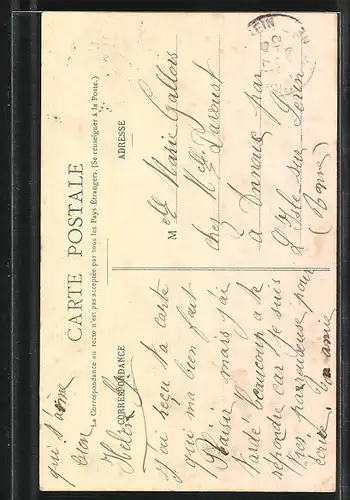 CARTE POSTALE
La Correspondance au recto n'est pas acceptée par tous les Pays Étrangers. (Se renseigner à la Poste.)
CORRESPONDANCE
ADRESSE
J'ai reçu ta carte
qui ma bien fait
Plaisir mais j'ai
tardé beaucoup a te
répondre car je suis
très paresseuse pour
écrire. Ton amie
qui t'aime
bien
Hélène
M elle Marie Gallois
chez M elle Davoust
a Annoux par
L'Isle sur Serein
(Yonne)